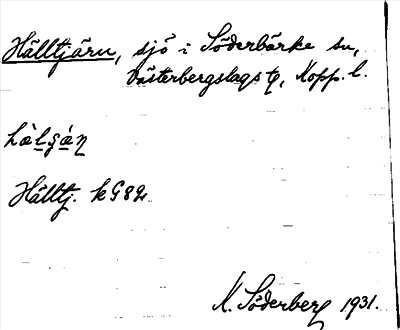 Hälltjärn, sjö i Söderbärke sn,
Västerbergslags tg, Kopp. l.
hὰlʂάη
Hälltj. k G 82
K. Söderberg 1931.